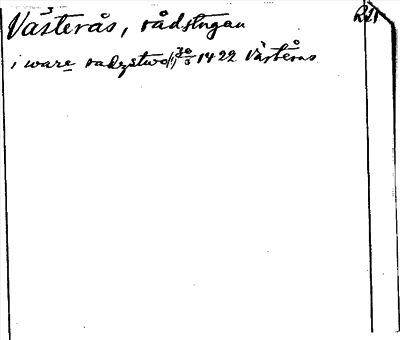 Västerås, rådstugan
i ware radzstwo 30/3 1422 Västerås